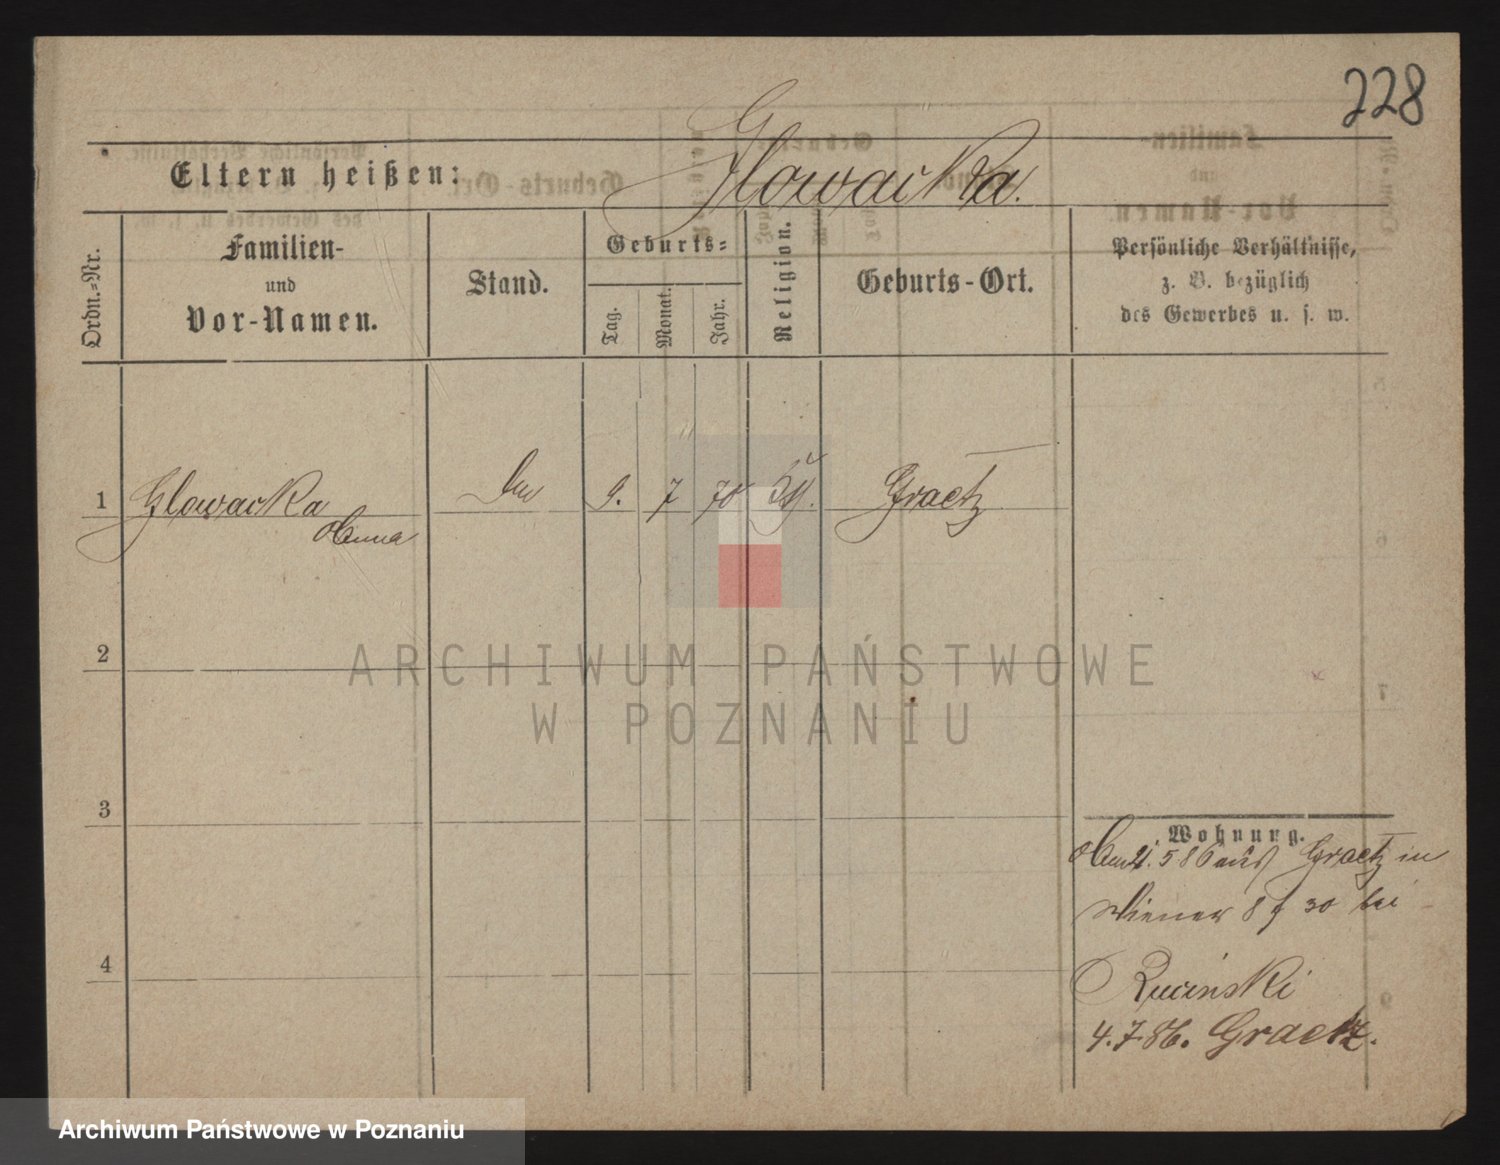 228
Eltern heißen: Glowacka.
Ordn.-Nr.
Familien-
und
Vor-Namen.
Stand.
Geburts-
Tag.
Monat.
Jahr.
Religion.
Geburts-Ort.
Persönliche Verhältnisse,
z. B. bezüglich
des Gewerbes u. s. w.
1 Glowacka 9. 7 70 Graetz
Anna
2
ARCHIWUM PAŃSTWOWE
W POZNANIU
3
Wohnung.
5 86 aus Graetz in
Wiener 30 bei
4
Rucinski
4.7.86. Graetz.
Archiwum Państwowe w Poznaniu